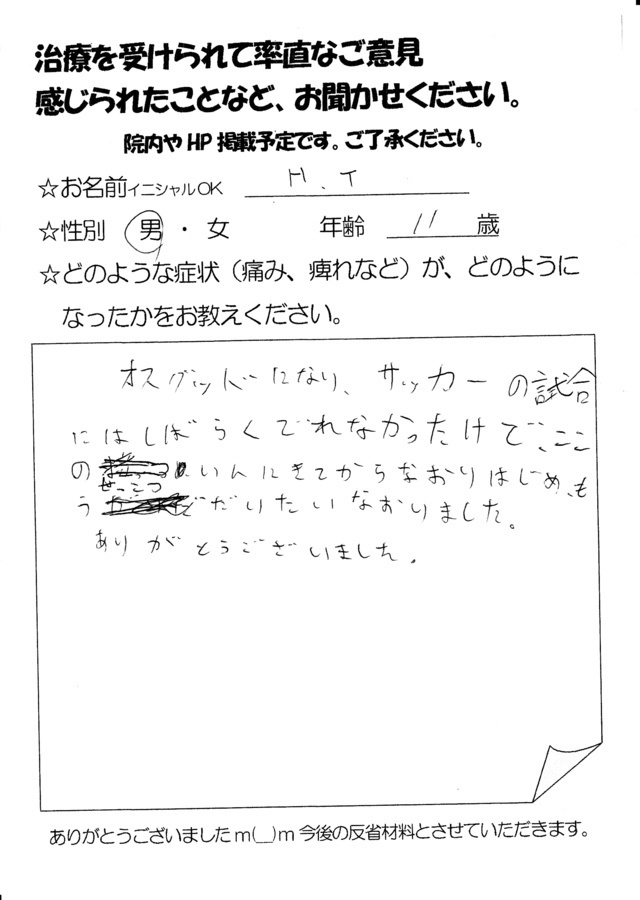 治療を受けられて率直なご意見
感じられたことなど、お聞かせください。
院内やHP掲載予定です。ご了承ください。
☆お名前イニシャルOK H.T
☆性別 男・女 年齢 11 歳
☆どのような症状(痛み、痺れなど)が、どのように
なったかをお教えください。
オスグッドになり、サッカーの試合
にはしばらくでれなかったけど、ここ
のせっこついんにきてからなおりはじめ、も
うだいたいなおりました。
ありがとうございました。
ありがとうございましたm(__)m今後の反省材料とさせていただきます。